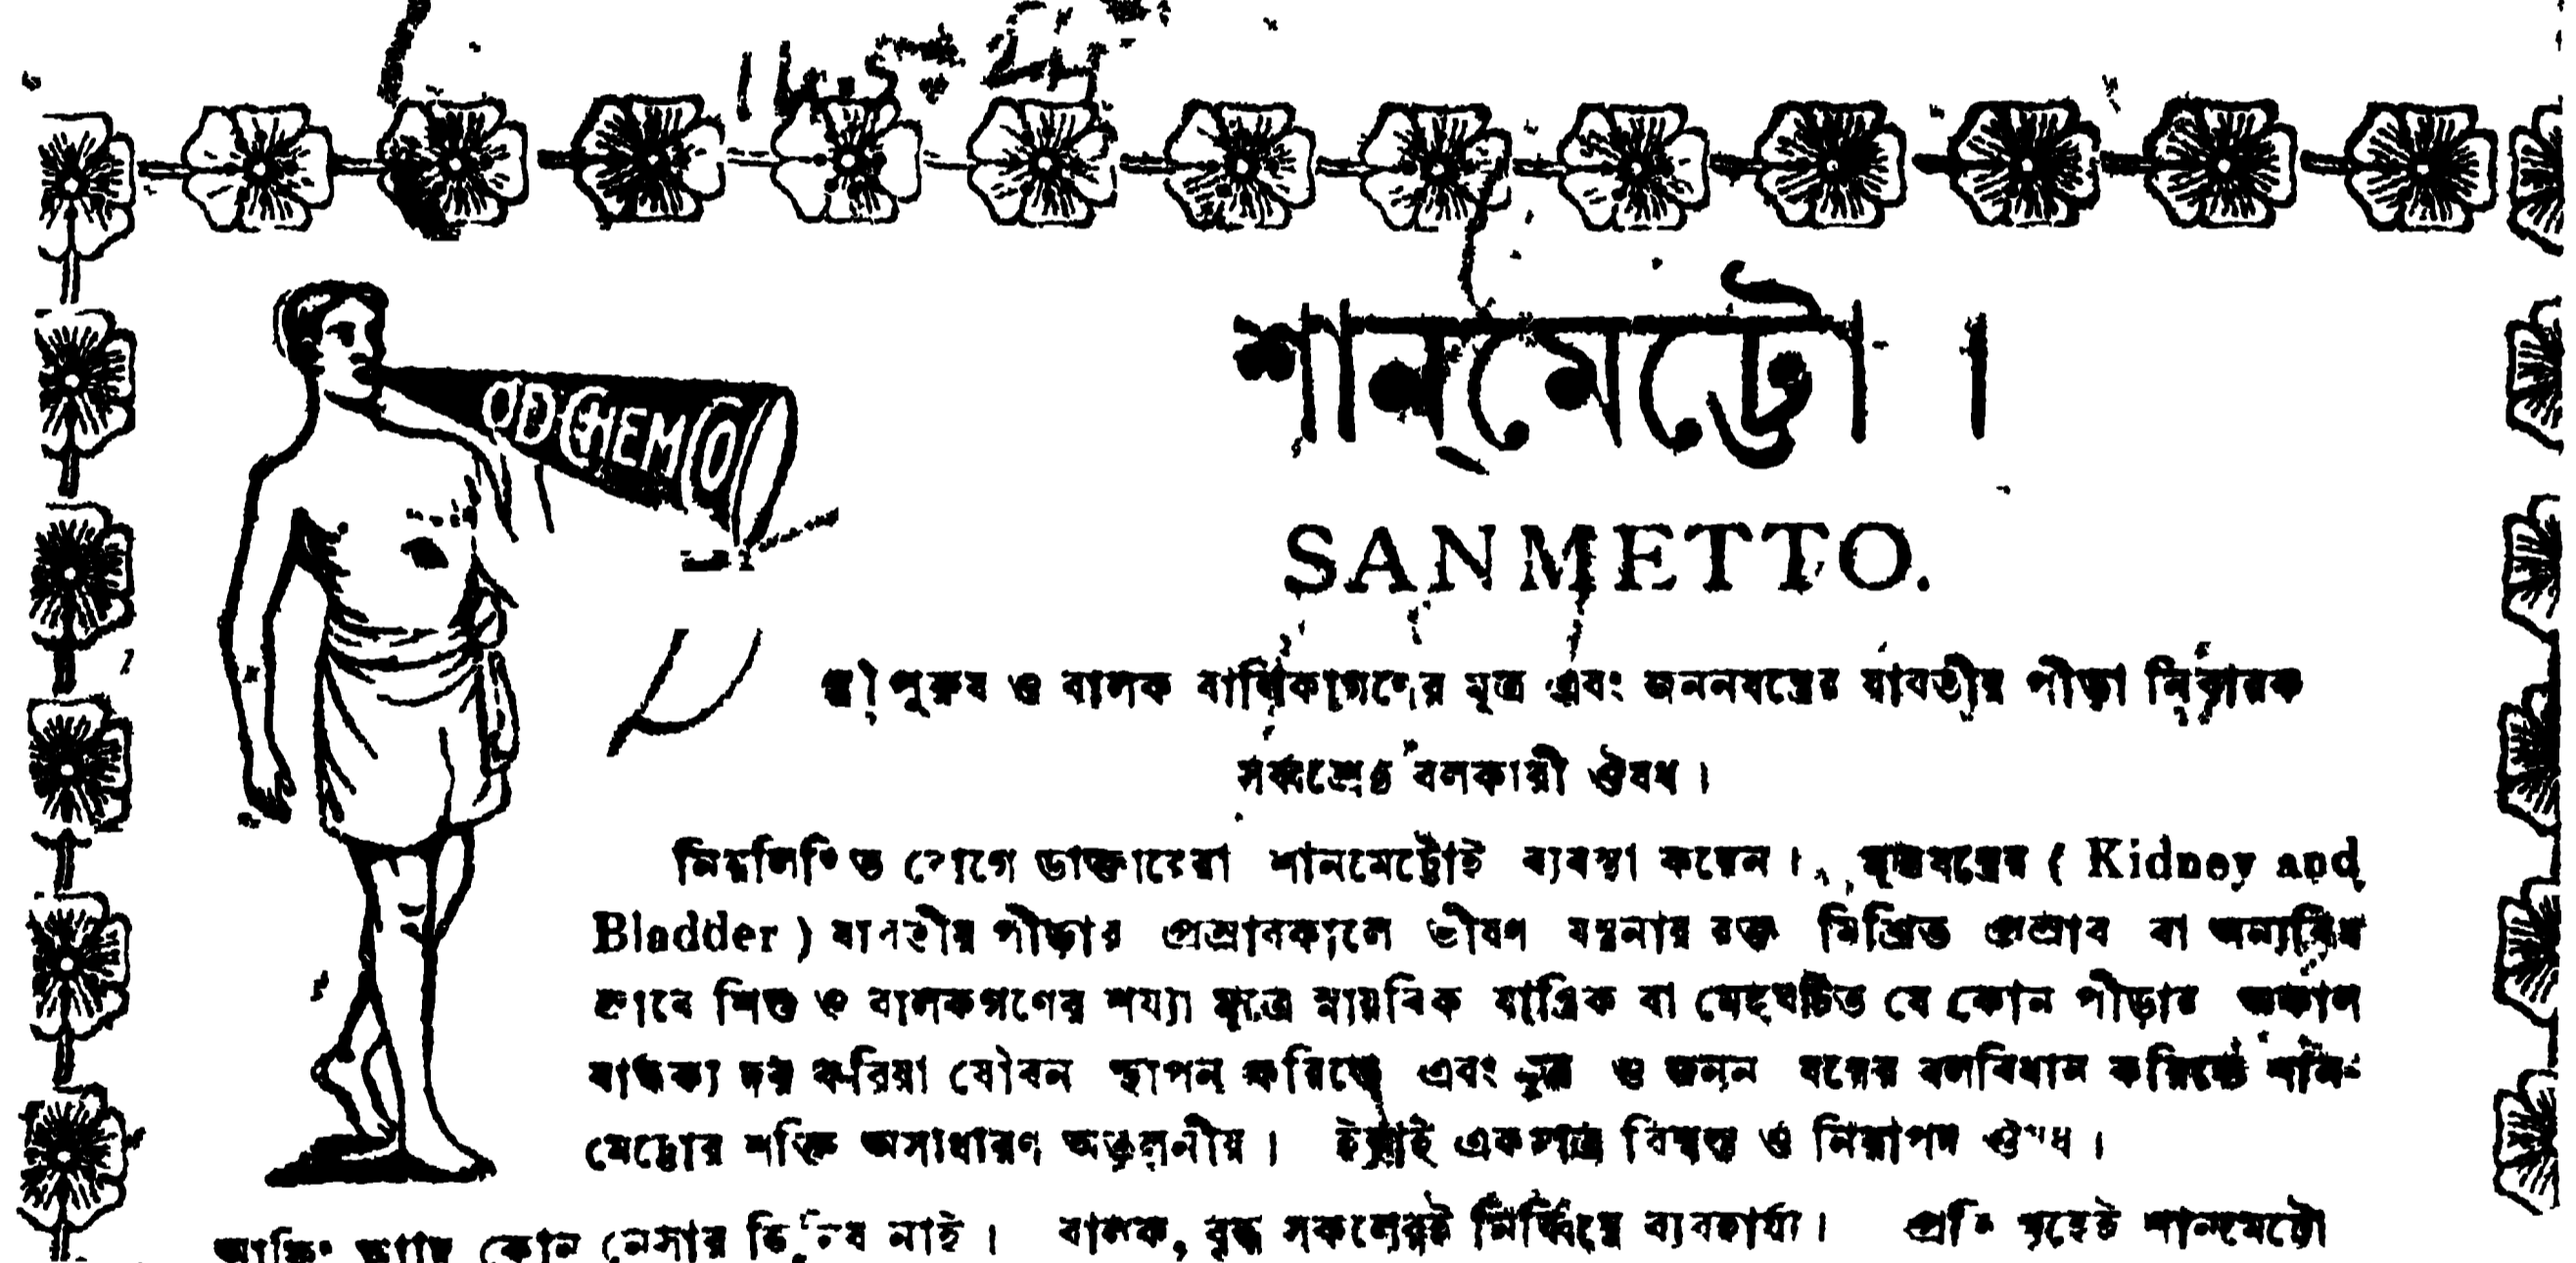 শান্‌মেট্টো ।
OD CHEM CO
SANMETTO.
স্ত্রী পুরুষ ও বালক বালিকাগণের মূত্র এবং জননযন্ত্রের যাবতীয় পীড়া নিবারক
সর্ব্বশ্রেষ্ঠ বলকারী ঔষধ ।
নিম্নলিখিত রোগে ডাক্তারেরা শানমেট্টোই ব্যবস্থা করেন । মূত্রযন্ত্রের ( Kidney and
Bladder ) যাবতীয় পীড়ার প্রস্রাবকালে ভীষণ যন্ত্রনায় রক্ত মিশ্রিত প্রস্রাব বা অন্যবিধ
স্রাবে শিশু ও বালকগণের শয্যা মূত্রে স্নায়বিক যান্ত্রিক বা মেহঘটিত যে কোন পীড়ার অকাল
বার্ধক্য দূর করিয়া যৌবন স্থাপন করিতে এবং মূত্র ও জনন যন্ত্রের বলবিধান করিতে শান-
মেট্টোর শক্তি অসাধারণ অতুলনীয় । ইহাই একমাত্র বিশ্বস্ত ও নিরাপদ ঔষধ ।
কোন নেসার জিনিষ নাই । বালক, বৃদ্ধ সকলেরই নির্ব্বিঘ্নে ব্যবহার্য্য । প্রতি গৃহেই শানমেট্টো